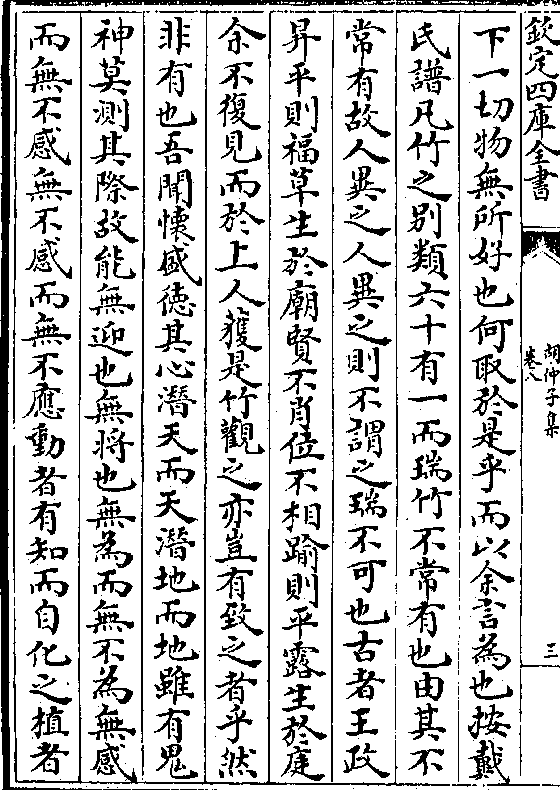 欽定四庫全書
胡仲子集
卷八
三
下一切物無所好也何取於是乎而以余言為也按戴
氏譜凡竹之別類六十有一而瑞竹不常有也由其不
常有故人異之人異之則不謂之瑞不可也古者王政
昇平則福草生於廟賢不肖位不相踰則平露生於庭
余不復見而於上人獲是竹觀之亦豈有致之者乎然
非有也吾聞懷盛徳其心潛天而天潛地而地雖有鬼
神莫測其際故能無迎也無将也無為而無不為無感
而無不感無不感而無不應動者有知而自化之植者